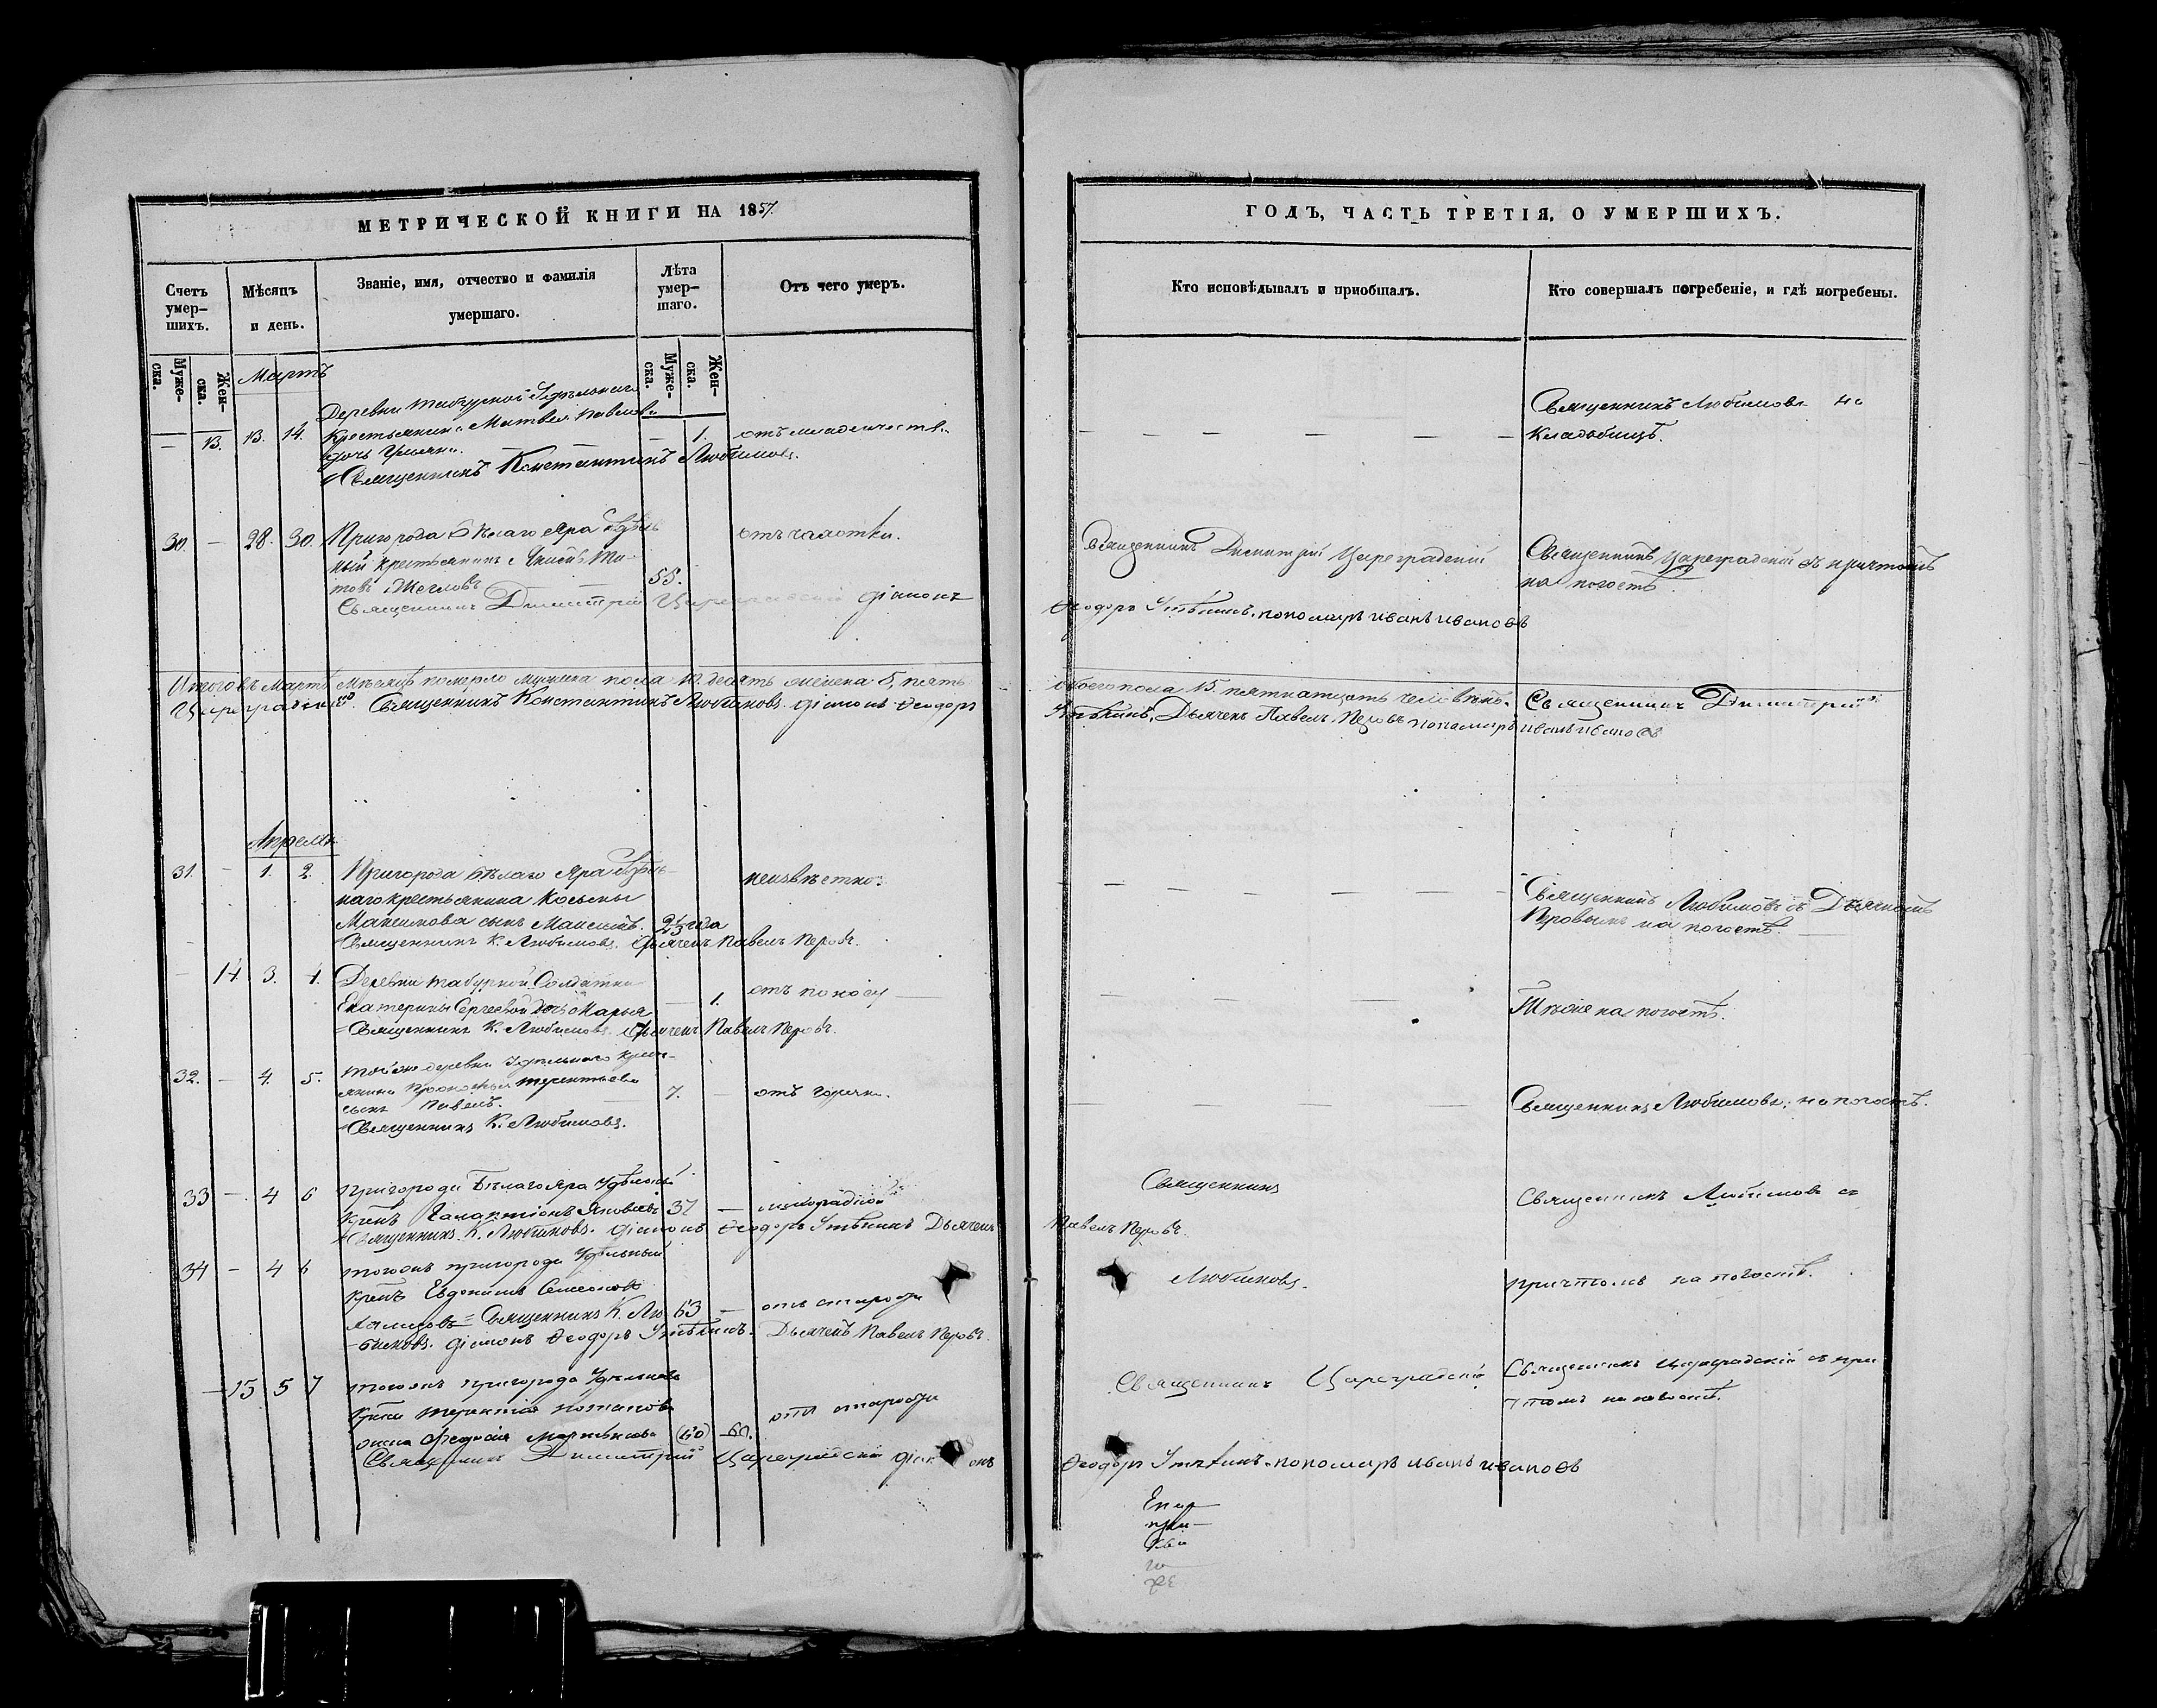 МЕТРИЧЕСКОЙ КНИГИ НА 1857.
Счетъ умер-
шихъ.
Мѣсяцъ
и день.
Званіе, имя, отчество и фамилія
умершаго.
Лѣта
умер-
шаго.
Отъ чего умеръ.
Муже-
ска.
Жен-
ска.
Муже-
ска.
Жен-
ска.
Мартъ
Деревни Табурной Удѣльнаго
— 13. 13. 14. Крестьянина Матвея Павлова — 1. отъ младенчества
дочь
Священникъ Константинъ Любимовъ.
30. — 28. 30. Пригорода Бѣлаго Яра Удѣль
ный крестьянинъ 55. отъ чахотки.
Священникъ Димитрій Цареградскій діаконъ
Итого въ Мартѣ мѣсяцѣ померло мужеска пола 10. десять женска 5, пять
Цареградскій. Священникъ Константинъ Любимовъ. діаконъ Ѳеодоръ
Апрель
31. — 1. 2. Пригорода Бѣлаго Яра Удѣль-
наго крестьянина Косьмы
Максимова сынъ Максимъ. года неизвѣстно.
Священникъ К. Любимовъ. Дьячекъ Павелъ Перовъ.
— 14 3. 4. Деревни Табурной Солдатки
Екатерины Сергеевой дочь Марья — 1. отъ поносу
Священникъ К. Любимовъ. Дьячекъ Павелъ Перовъ.
32. — 4. 5. Той же деревни Удѣльнаго крест-
янина Прокофья Терентьева
сынъ Павелъ. 7. — отъ горячки.
Священникъ К. Любимовъ.
33 — 4 6 Пригорода Бѣлаго Яра Удѣльный
Крнъ Галактіонъ Яковлевъ 37 — лихорадкой
Священникъ К. Любимовъ. діаконъ Ѳеодоръ Утѣкинъ Дьячекъ
34 — 4 6 Тогожъ пригорода Удѣльный
Крнъ Евдокимъ Семеновъ
Священникъ К. Лю- 63 — отъ старости
бимовъ. діаконъ Ѳеодоръ Утѣкинъ. Дьячекъ Павелъ Перовъ.
— 15 5 7 Тогожъ пригорода Удѣльнаго
Крна Терентія Потапова
жена Ѳеодосія (60) 60. отъ старости
Священникъ Димитрій Цареградскій діаконъ
ГОДЪ, ЧАСТЬ ТРЕТІЯ, О УМЕРШИХЪ.
Кто исповѣдывалъ и пріобщалъ.
Кто совершалъ погребеніе, и гдѣ погребены.
Священникъ Любимовъ на
Кладбищѣ.
Священникъ Димитрій Цареградскій
Священникъ Цареградскій съ причтомъ
на погостѣ.
Ѳеодоръ Утѣкинъ. пономарь Иванъ Ивановъ
обоего пола 15. пятнатцать человѣкъ. Священникъ Димитрій
Утѣкинъ, Дьячекъ Павелъ Перовъ пономарь Иванъ Ивановъ
Священникъ Любимовъ съ Дьячкомъ
Перовымъ на погостѣ.
Тѣже на погостѣ.
Священникъ Любимовъ, на погостѣ.
Священникъ
Священникъ Любимовъ съ
Павелъ Перовъ.
Любимовъ.
причтомъ на погостѣ.
Священникъ Цареградскій
Священникъ Цареградскій съ при
чтомъ на погостѣ.
Ѳеодоръ Утѣкинъ. пономарь Иванъ Ивановъ